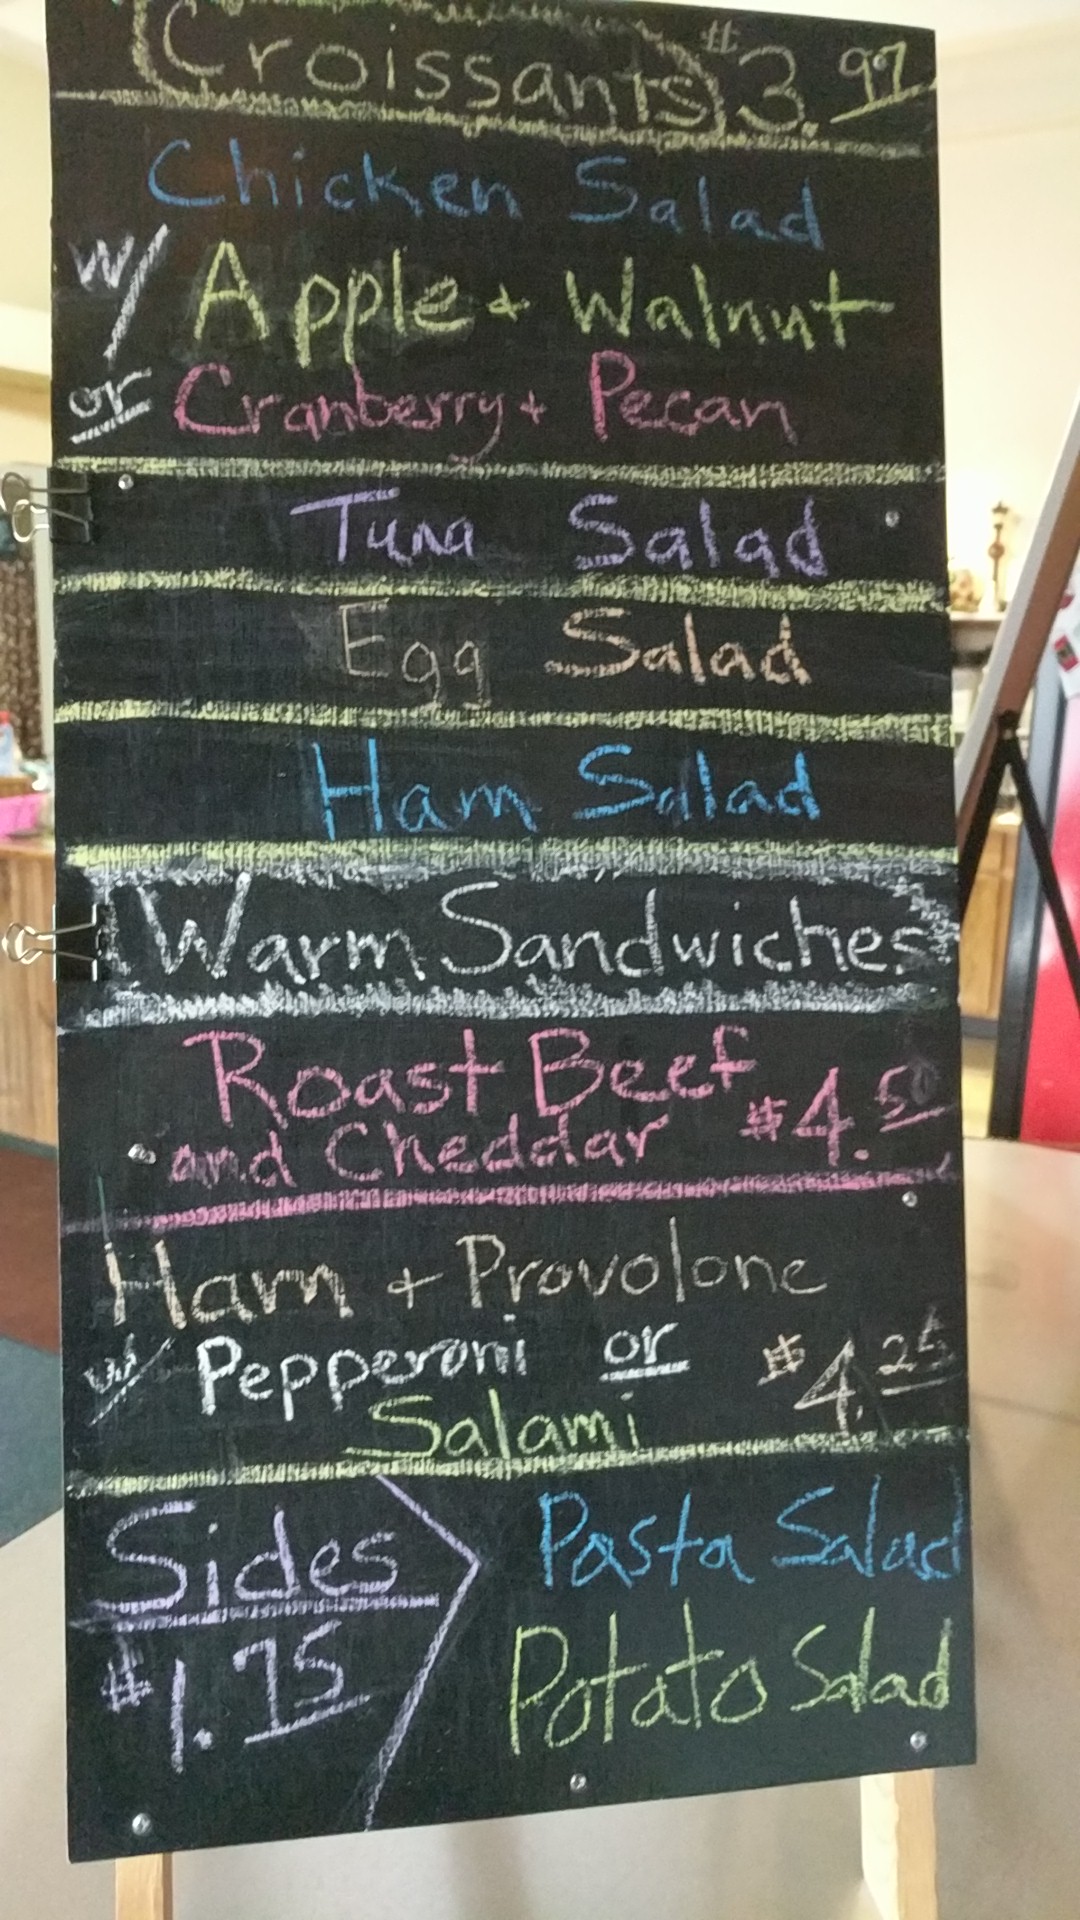 Croissants $3.97
Chicken Salad
w/ Apple + Walnut
or Cranberry + Pecan
Tuna Salad
Egg Salad
Ham Salad
Warm Sandwiches
Roast Beef
and Cheddar $4.50
Ham + Provolone
w/ Pepperoni or $4.25
Salami
Sides
$1.75
Pasta Salad
Potato Salad